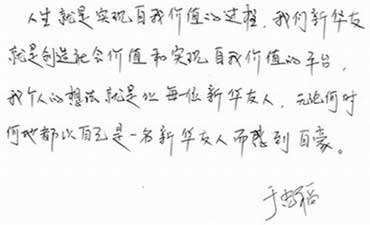 人生就是实现自我价值的过程，我们新华友
就是创造社会价值和实现自我价值的平台，
我个人的想法就是让每位新华友人，无论何时
何地都以自己是一名新华友人而感到自豪。
于忠福